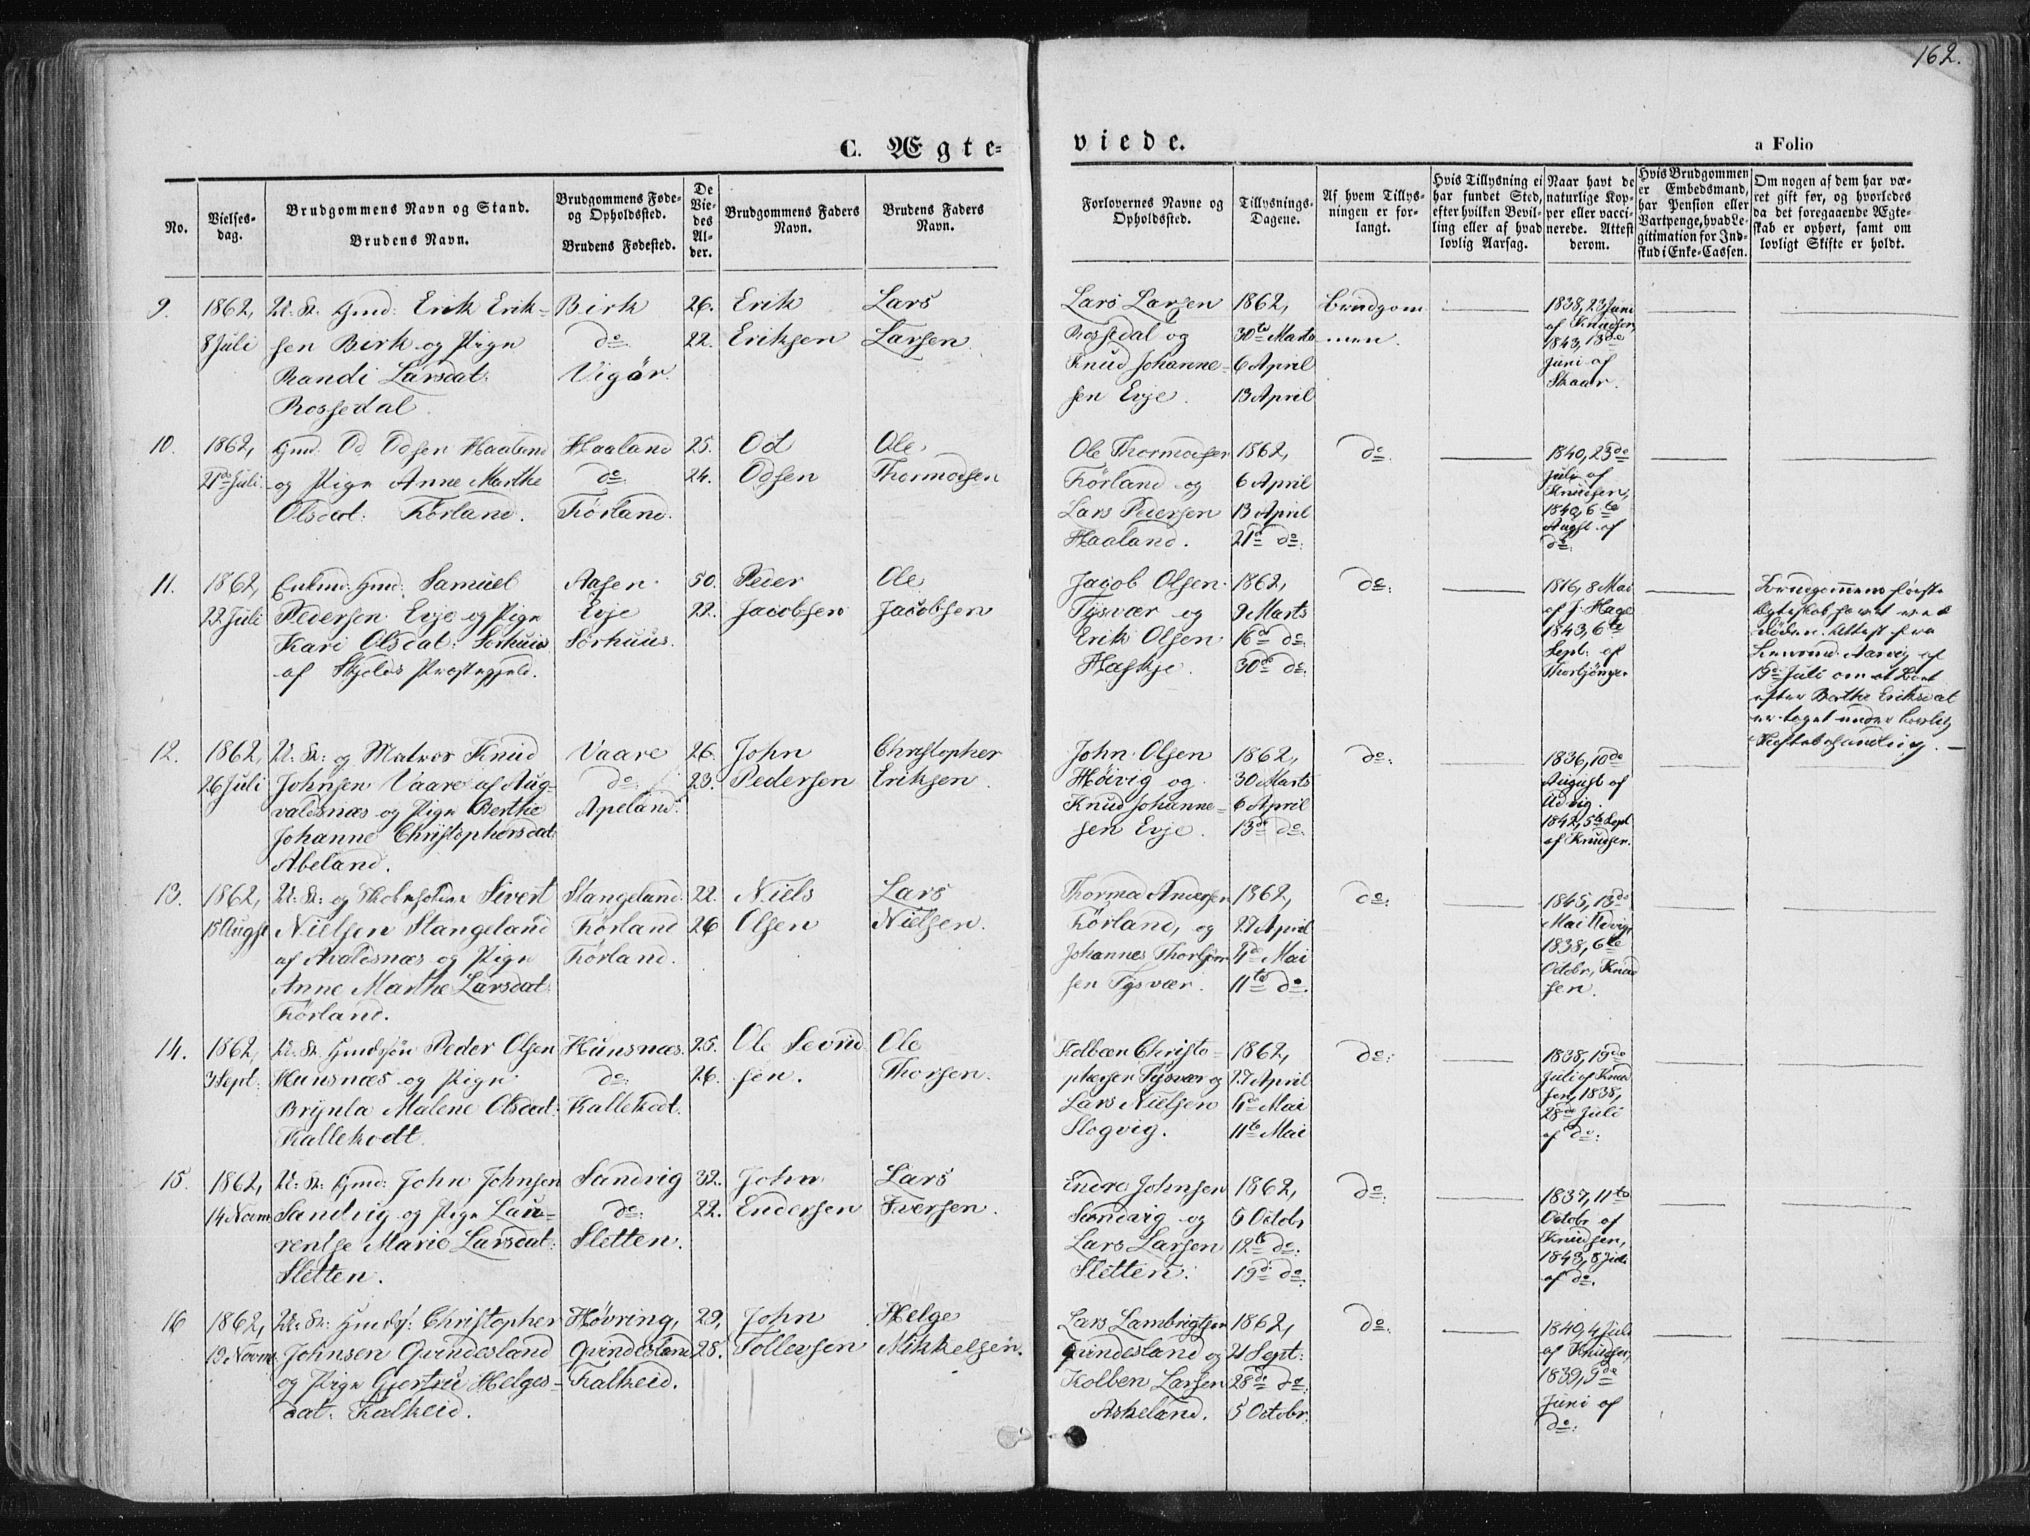 162.
C. Ægte-
viede.
a Folio
No.
Vielses-
dag.
Brudgommens Navn og Stand.
Brudens Navn.
Brudgommens Føde-
og Opholdssted.
Brudens Fødested.
De
Vie-
des
Al-
der.
Brudgommens Faders
Navn.
Brudens Faders
Navn.
Forlovernes Navne og
Opholdssted.
Tillysnings-
Dagene.
Af hvem Tillys-
ningen er for-
langt.
Hvis Tillysning ei
har fundet Sted,
efter hvilken Bevil-
ling eller af hvad
lovlig Aarsag.
Naar havt de
naturlige Kop-
per eller vacci-
nerede. Attest
derom.
Hvis Brudgommen
er Embedsmand,
har Pension eller
Vartpenge, hvad Le-
gitimation for Ind-
skud i Enke-Cassen.
Om nogen af dem har væ-
ret gift før, og hvorledes
da det foregaaende Ægte-
skab er ophørt, samt om
lovligt Skifte er holdt.
9. 1862, U: St: Gmd: Erik Erik- Birk 26. Erik Lars Lars Larsen 1862, Brudgom 1838, 23 Juni
8 Juli sen Birk og Pige do 22. Eriksen Larsen. Rossedal og 30te Marts men. af Knudsen,
Randi Larsdat: Vigør. Knud Johanne- 6 April 1843, 13de
Rossedal. sen Evje. 13 April Juni af
Skaar.
10. 1862, Gmd: Od Odsen Haaland Haaland 25. Od Ole Ole Thormodsen 1862, do. 1840, 23de
21de Juli og Pige Anne Marthe do 24. Odsen Thormodsen Førland og 6 April Juli af
Olsdat: Førland. Førland. Lars Pedersen 13 April Knudsen,
Haaland. 21de do: 1840, 6te
Augst. af
do:
11. 1862, Enkmd: Gmd: Samuel Aasen 50. Peder Ole Jacob Olsen 1862, do: 1816, 8 Mai Brudgommens første
22 Juli Pedersen Evje og Pige Evje 22. Jacobsen Jacobsen Tysvær og 9 Marts af J. Hage Egteskab hævet ved
Kari Olsdat: Sørhuus Sørhuus. Erik Olsen 16de do: 1843, 6te Døden. Attest fra
af Skjolds Præstegjeld. Hæskje. 30de do: Sept: af Aarvig af
Thorbjønsen 19de Juli om at Boet
efter Berthe Eriksdat
er taget under lovlig
Skiftebehandling.
12. 1862, U: St: og Matros Knud Vaare 26. John Christopher John Olsen 1862, do: 1836, 10de
26 Juli Johnsen Vaare af Aug- do: 23. Pedersen Eriksen. Høivig og 30 Marts August af
valdsnæs og Pige Berthe Apeland. Knud Johanne- 6 April Udvig.
Johanne Christophersdat sen Evje. 13de do: 1842, 5te Sept
Abeland. af Knudsen.
13. 1862, U: St: og Sivert Stangeland 22. Niels Lars Thormo Andersen 1862, do: 1845, 13de
15 Augst Nielsen Stangeland Førland 26 Olsen Nielsen. Førland, og 27 April Mai Udvig,
af Avaldsnæs og Pige Førland. Johannes Thorbjørn- 4de Mai 1838, 6te
Anne Marthe Larsdat: sen Tysvær. 11te do. Octobr, Knud
Førland. sen.
14. 1862, U: St: Gmdsøn Peder Olsen Hunsnæs. 25. Ole Sevrid Ole Kolbæn Christo- 1862, do: 1838, 19de
3 Sept: Hunsnæs og Pige do: 26. sen. Thorsen. phersen Tysvær og 27 April Juli af Knud
Brynla Malene Olsdat: Kallekodt. Lars Nielsen 4de Mai sen, 1838,
Kallekodt. Slogvig. 11te Mai 28de Juli
af do:
15. 1862, U: St: Gmd: John Johnsen Sandvig 32. John Lars Endre Johnsen 1862, do: 1837, 11te
14 Novm Sandvig og Pige Lau- do: 22. Endersen Iversen. Sandvig og 5 Octobr Octobr af
rentse Marie Larsdat: Sletten. Lars Larsen 12te do: Knudsen,
Sletten. Sletten. 19de do: 1843, 8 Juli
af do.
16 1862, U: St: Gmds: Christopher Høvring, 29, John Helge Lars Lambrigtsen 1862, do: 1840, 4 Juli
19 Novm. Johnsen Qvindesland Qvindesland 28. Tollevsen Mikkelsen. Qvindesland og 21 Sept: af Knudsen,
og Pige Gjertru Helges- Kalheid. Kolben Larsen 28de do: 1839, 9de
dat: Kalheid. Askeland. 5 Octobr. Juni af
do: